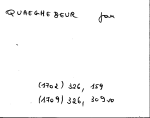 QUAEGHEBEUR Jan
(1702) 326, 159
(1709) 326, 309vo